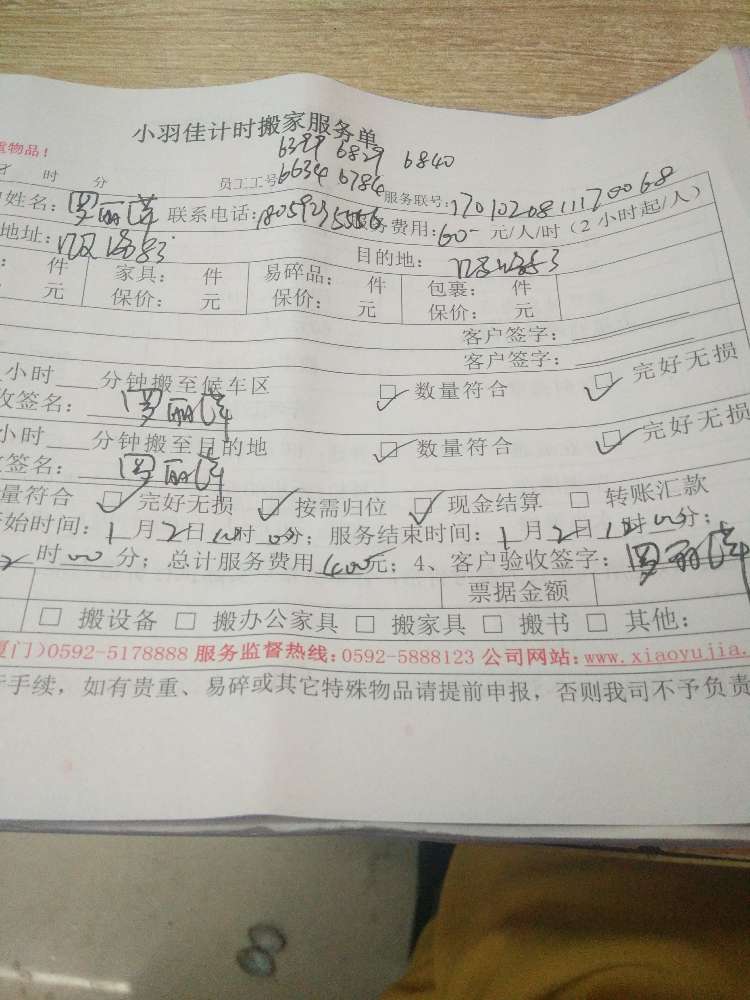 小羽佳计时搬家服务单
6399 6829 6840
物品!
时 分 员工工号 6634 6784 服务联号:
姓名: 罗丽萍 联系电话: 费用:60 元/人/时(2 小时起/人)
地址: 目的地:
: 件 家具: 件 易碎品: 件 包裹: 件
元 保价: 元 保价: 元 保价: 元
客户签字:
客户签字:
小时 分钟搬至候车区 数量符合 完好无损
收签名: 罗丽萍
小时 分钟搬至目的地 数量符合 完好无损
签名: 罗丽萍
量符合 完好无损 按需归位 现金结算 转账汇款
始时间:1月2日 时 分; 服务结束时间:1月2日 时 分;
2时00分; 总计服务费用 元; 4、客户验收签字: 罗丽萍
票据金额
搬设备 搬办公家具 搬家具 搬书 其他:
厦门)0592-5178888 服务监督热线:0592-5888123 公司网站:www.xiaoyujia.
手续,如有贵重、易碎或其它特殊物品请提前申报,否则我司不予负责